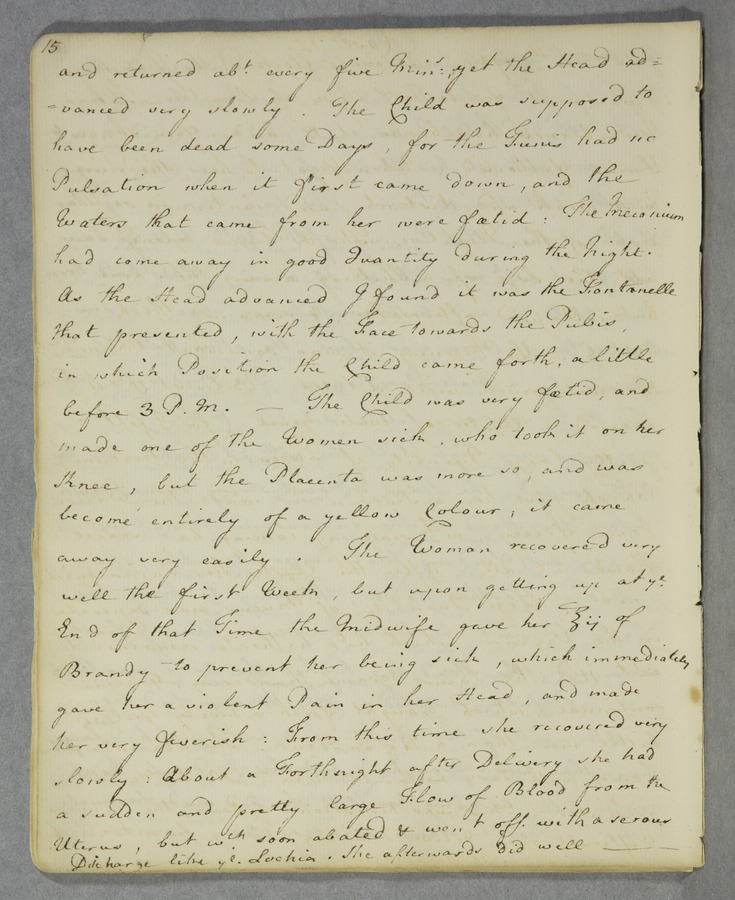 15
and returned abt. every five Mins: yet the Head ad=
=vanced very slowly. The Child was supposed to
have been dead some Days, for the Funis had no
Pulsation when it first came down, and the
Waters that came from her were fœtid: The Meconium
had come away in good Quantity during the Night.
As the Head advanced I found it was the Fontonelle
that presented, with the Face towards the Pubis,
in which Position the Child came forth, a little
before 3 P. M. — The Child was very fœtid, and
made one of the Women sick, who took it on her
Knee, but the Placenta was more so, and was
become entirely of a yellow Colour; it came
away very easily. The Woman recovered very
well the first Week, but upon getting up at ye.
End of that Time the Midwife gave her ℥ij of
Brandy to prevent her being sick, which immediately
gave her a violent Pain in her Head, and made
her very feverish: From this time she recovered very
slowly: About a Forthnight after Delivery she had
a sudden and pretty large Flow of Blood from the
Uterus, but wch soon abated & went off with a serous
Discharge like ye. Lochia. She afterwards did well —